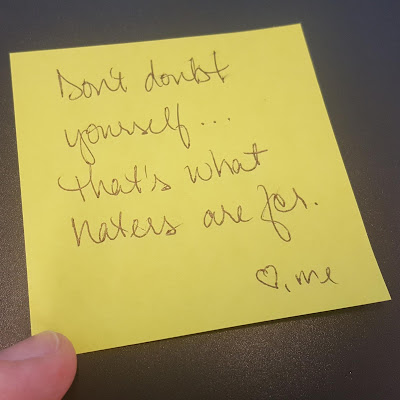 Don't doubt
yourself...
that's what
haters are for.
♡, me